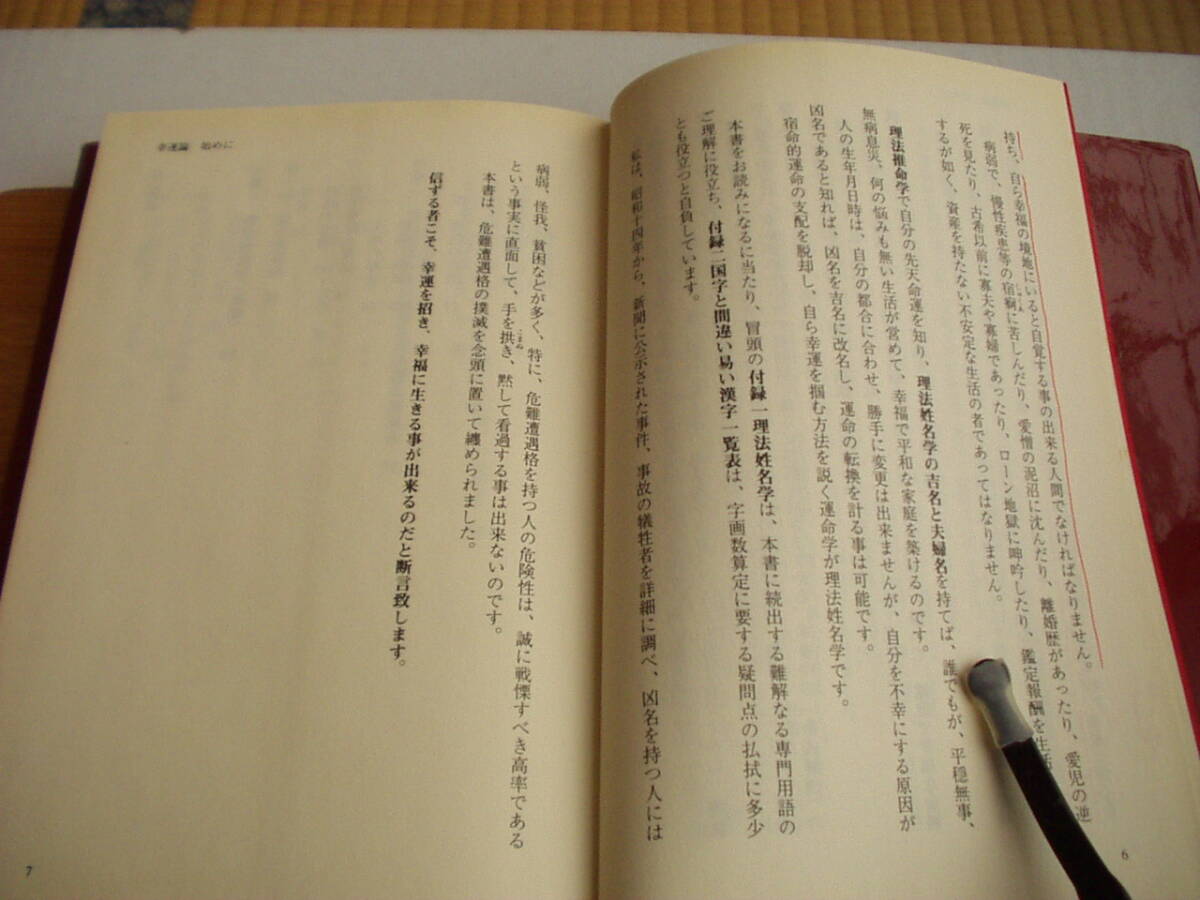 持ち、自ら幸福の境地にいると自覚する事の出来る人間でなければなりません。
病弱で、慢性疾患等の宿痾に苦しんだり、愛憎の泥沼に沈んだり、離婚歴があったり、愛児の逆
死を見たり、古希以前に寡夫や寡婦であったり、ローン地獄に呻吟したり、鑑定報酬を生活
するが如く、資産を持たない不安定な生活の者であってはなりません。
理法推命学で自分の先天命運を知り、理法姓名学の吉名と夫婦名を持てば、誰でもが、平穏無事、
無病息災、何の悩みも無い生活が営めて、幸福で平和な家庭を築けるのです。
人の生年月日時は、自分の都合に合わせ、勝手に変更は出来ませんが、自分を不幸にする原因が
凶名であると知れば、凶名を吉名に改名し、運命の転換を計る事は可能です。
宿命的運命の支配を脱却し、自ら幸運を掴む方法を説く運命学が理法姓名学です。
本書をお読みになるに当たり、冒頭の付録一理法姓名学は、本書に続出する難解なる専門用語の
ご理解に役立ち、付録二国字と間違い易い漢字一覧表は、字画数算定に要する疑問点の払拭に多少
とも役立つと自負しています。
私は、昭和十四年から、新聞に公示された事件、事故の犠牲者を詳細に調べ、凶名を持つ人には
6
幸運論 始めに
病弱、怪我、貧困などが多く、特に、危難遭遇格を持つ人の危険性は、誠に戦慄すべき高率である
という事実に直面して、手を拱き、黙して看過する事は出来ないのです。
こまぬ
本書は、危難遭遇格の撲滅を念頭に置いて纏められました。
信ずる者こそ、幸運を招き、幸福に生きる事が出来るのだと断言致します。
7